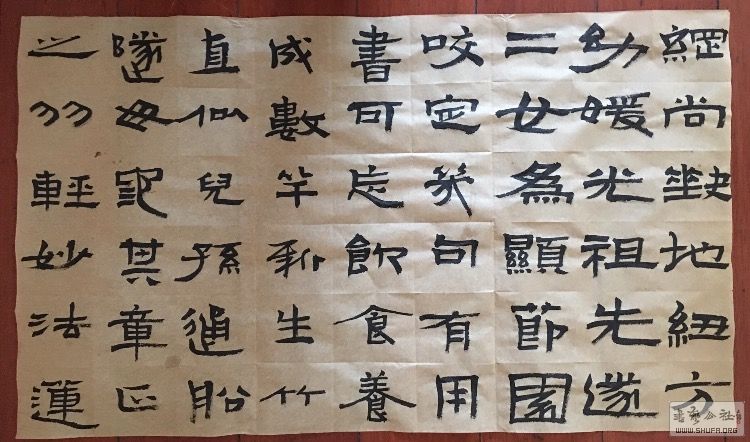 綱尚地紐方
幼媛光祖先遂
二女為顯節園
咬定幾句有用
書可忘飲食養
成數竿新生竹
直似兒孫通船
隧毋其章正
之羽輕妙法運
書藝公社
WWW.SHUFA.ORG